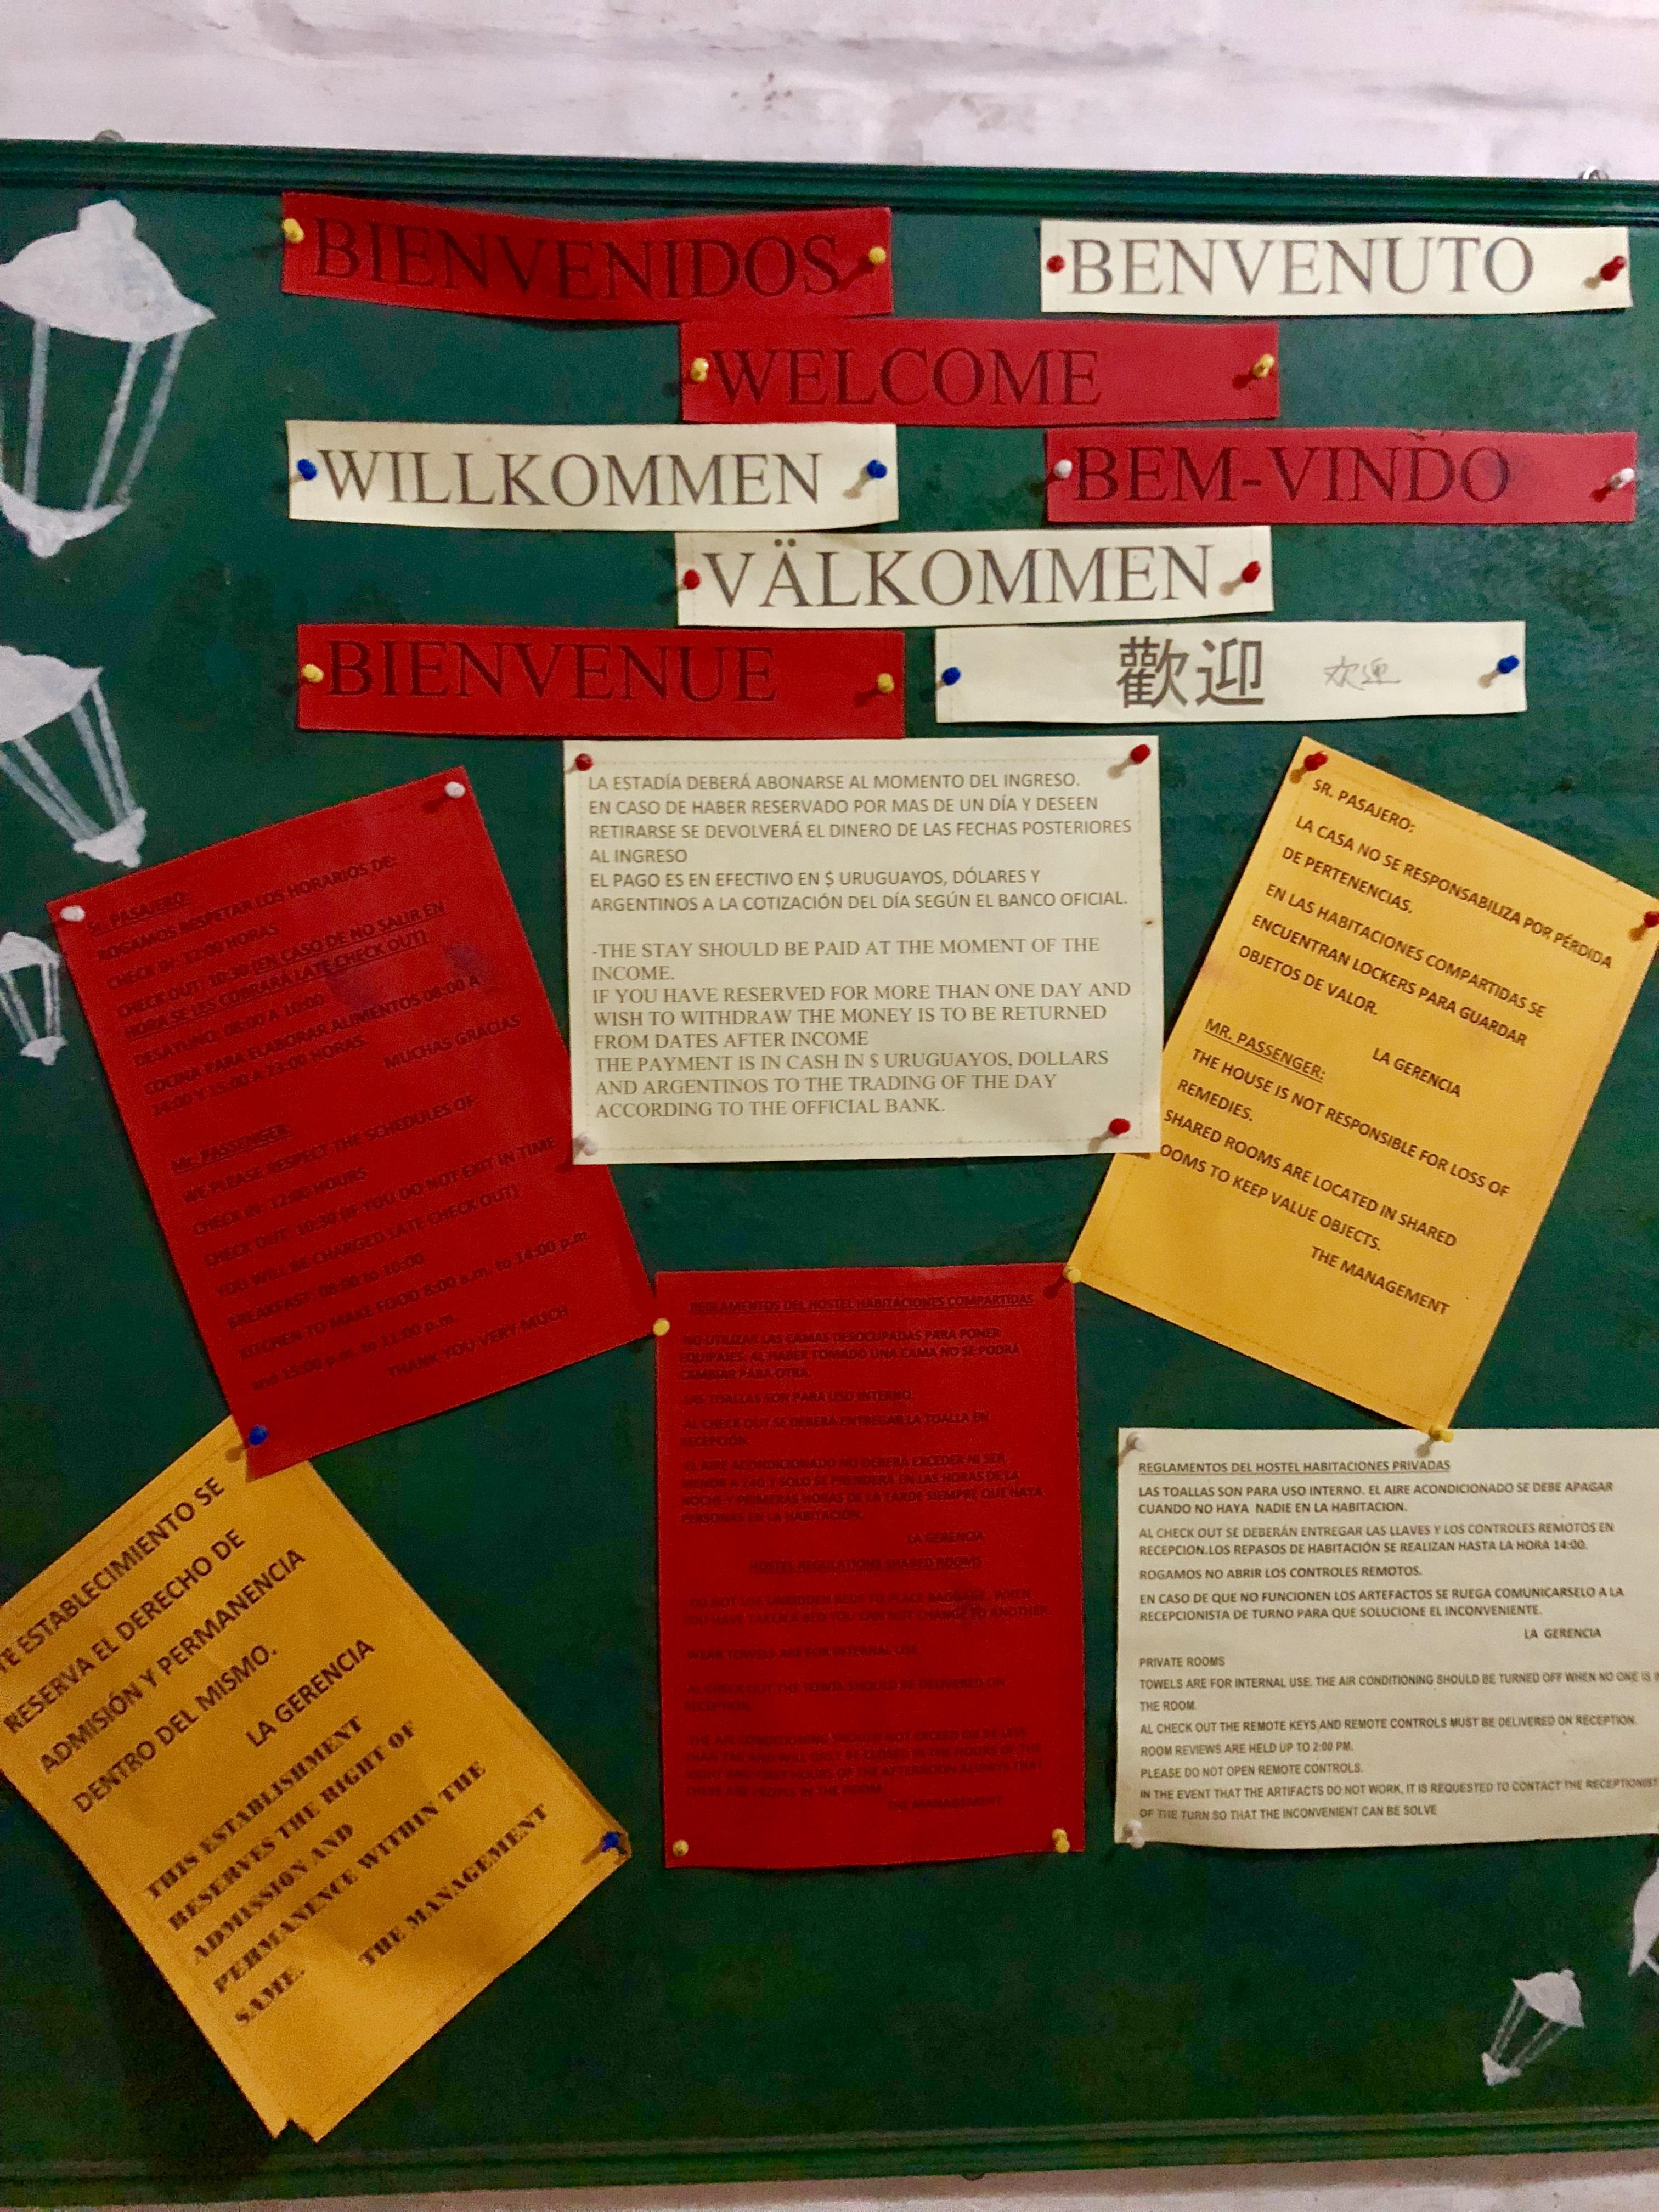 BIENVENIDOS
BENVENUTO
WELCOME
WILLKOMMEN
BEM-VINDO
VÄLKOMMEN
BIENVENUE
歡迎 欢迎
LA ESTADÍA DEBERÁ ABONARSE AL MOMENTO DEL INGRESO.
EN CASO DE HABER RESERVADO POR MAS DE UN DÍA Y DESEEN
RETIRARSE SE DEVOLVERÁ EL DINERO DE LAS FECHAS POSTERIORES
AL INGRESO
EL PAGO ES EN EFECTIVO EN $ URUGUAYOS, DÓLARES Y
ARGENTINOS A LA COTIZACIÓN DEL DÍA SEGÚN EL BANCO OFICIAL.
-THE STAY SHOULD BE PAID AT THE MOMENT OF THE
INCOME.
IF YOU HAVE RESERVED FOR MORE THAN ONE DAY AND
WISH TO WITHDRAW THE MONEY IS TO BE RETURNED
FROM DATES AFTER INCOME
THE PAYMENT IS IN CASH IN $ URUGUAYOS, DOLLARS
AND ARGENTINOS TO THE TRADING OF THE DAY
ACCORDING TO THE OFFICIAL BANK.
Sr. PASAJERO:
ROGAMOS RESPETAR LOS HORARIOS DE:
CHECK IN: 12:00 HORAS
CHECK OUT: 10:30 (EN CASO DE NO SALIR EN
HORA SE LES COBRARÁ LATE CHECK OUT)
DESAYUNO: 08:00 A 10:00
COCINA PARA ELABORAR ALIMENTOS 08:00 A
14:00 Y 15:00 A 23:00 HORAS.
MUCHAS GRACIAS
Mr. PASSENGER:
WE PLEASE RESPECT THE SCHEDULES OF:
CHECK IN: 12:00 HOURS
CHECK OUT: 10:30 (IF YOU DO NOT EXIT IN TIME
YOU WILL BE CHARGED LATE CHECK OUT)
BREAKFAST: 08:00 to 10:00
KITCHEN TO MAKE FOOD 8:00 a.m. to 14:00 p.m.
and 15:00 p.m. to 11:00 p.m.
THANK YOU VERY MUCH
SR. PASAJERO:
LA CASA NO SE RESPONSABILIZA POR PÉRDIDA
DE PERTENENCIAS.
EN LAS HABITACIONES COMPARTIDAS SE
ENCUENTRAN LOCKERS PARA GUARDAR
OBJETOS DE VALOR.
LA GERENCIA
MR. PASSENGER:
THE HOUSE IS NOT RESPONSIBLE FOR LOSS OF
REMEDIES.
SHARED ROOMS ARE LOCATED IN SHARED
OOMS TO KEEP VALUE OBJECTS.
THE MANAGEMENT
TE ESTABLECIMIENTO SE
RESERVA EL DERECHO DE
ADMISIÓN Y PERMANENCIA
DENTRO DEL MISMO.
LA GERENCIA
THIS ESTABLISHMENT
RESERVES THE RIGHT OF
ADMISSION AND
PERMANENCE WITHIN THE
SAME.
THE MANAGEMENT
REGLAMENTOS DEL HOSTEL HABITACIONES COMPARTIDAS
NO UTILIZAR LAS CAMAS DESOCUPADAS PARA PONER
EQUIPAJES. AL HABER TOMADO UNA CAMA NO SE PODRÁ
CAMBIAR PARA OTRA.
LAS TOALLAS SON PARA USO INTERNO.
AL CHECK OUT SE DEBERÁ ENTREGAR LA TOALLA EN
RECEPCIÓN.
EL AIRE ACONDICIONADO NO DEBERÁ EXCEDER NI SER
MENOR A 24G Y SOLO SE PRENDERÁ EN LAS HORAS DE LA
NOCHE Y PRIMERAS HORAS DE LA TARDE SIEMPRE QUE HAYA
PERSONAS EN LA HABITACIÓN.
LA GERENCIA
HOSTEL REGULATIONS SHARED ROOMS
DO NOT USE UNBIDDEN BEDS TO PLACE BAGGAGE. WHEN
YOU HAVE TAKEN A BED YOU CAN NOT CHANGE TO ANOTHER
WEAR TOWELS ARE FOR INTERNAL USE
AL CHECK OUT THE TOWEL SHOULD BE DELIVERED ON
RECEPTION.
THE AIR CONDITIONING SHOULD NOT EXCEED OR BE LESS
THAN 24G AND WILL ONLY BE CLOSED IN THE HOURS OF THE
NIGHT AND FIRST HOURS OF THE AFTERNOON ALWAYS THAT
THERE ARE PEOPLE IN THE ROOM.
THE MANAGEMENT
REGLAMENTOS DEL HOSTEL HABITACIONES PRIVADAS
LAS TOALLAS SON PARA USO INTERNO. EL AIRE ACONDICIONADO SE DEBE APAGAR
CUANDO NO HAYA NADIE EN LA HABITACION.
AL CHECK OUT SE DEBERÁN ENTREGAR LAS LLAVES Y LOS CONTROLES REMOTOS EN
RECEPCION.LOS REPASOS DE HABITACIÓN SE REALIZAN HASTA LA HORA 14:00.
ROGAMOS NO ABRIR LOS CONTROLES REMOTOS.
EN CASO DE QUE NO FUNCIONEN LOS ARTEFACTOS SE RUEGA COMUNICARSELO A LA
RECEPCIONISTA DE TURNO PARA QUE SOLUCIONE EL INCONVENIENTE.
LA GERENCIA
PRIVATE ROOMS
TOWELS ARE FOR INTERNAL USE. THE AIR CONDITIONING SHOULD BE TURNED OFF WHEN NO ONE IS I
THE ROOM.
AL CHECK OUT THE REMOTE KEYS AND REMOTE CONTROLS MUST BE DELIVERED ON RECEPTION.
ROOM REVIEWS ARE HELD UP TO 2:00 PM.
PLEASE DO NOT OPEN REMOTE CONTROLS.
IN THE EVENT THAT THE ARTIFACTS DO NOT WORK, IT IS REQUESTED TO CONTACT THE RECEPTIONIST
OF THE TURN SO THAT THE INCONVENIENT CAN BE SOLVE